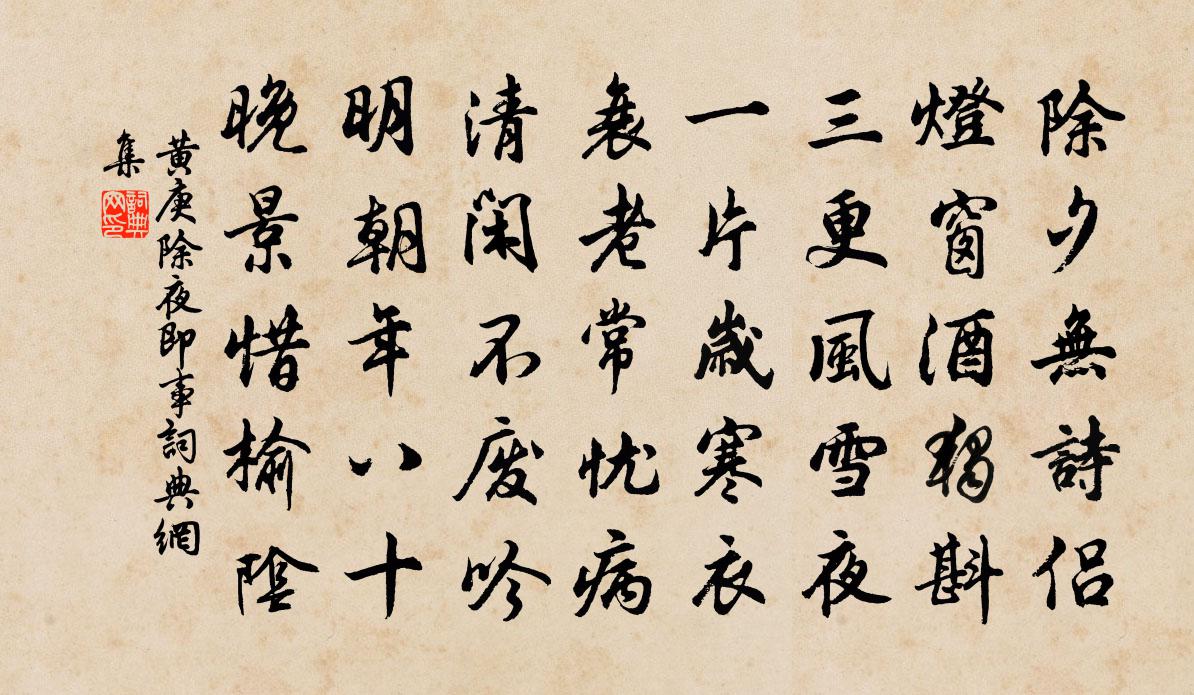 除夕無詩侶
燈窗酒獨斟
三更風雪夜
一片歲寒衣
衰老常忧病
清閑不废吟
明朝年八十
晚景惜榆陰
黃庚除夜即事詞典網
集
詞典
网印